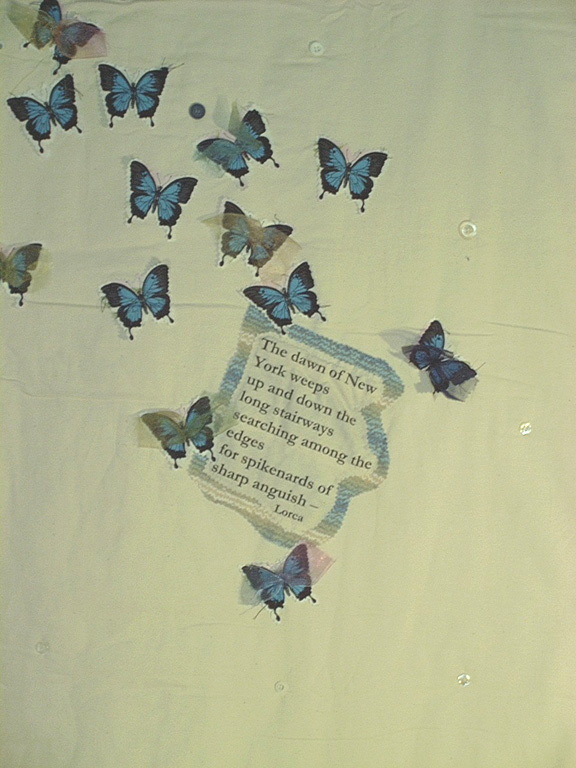 The dawn of New
York weeps
up and down the
long stairways
searching among the
edges
for spikenards of
sharp anguish –
Lorca